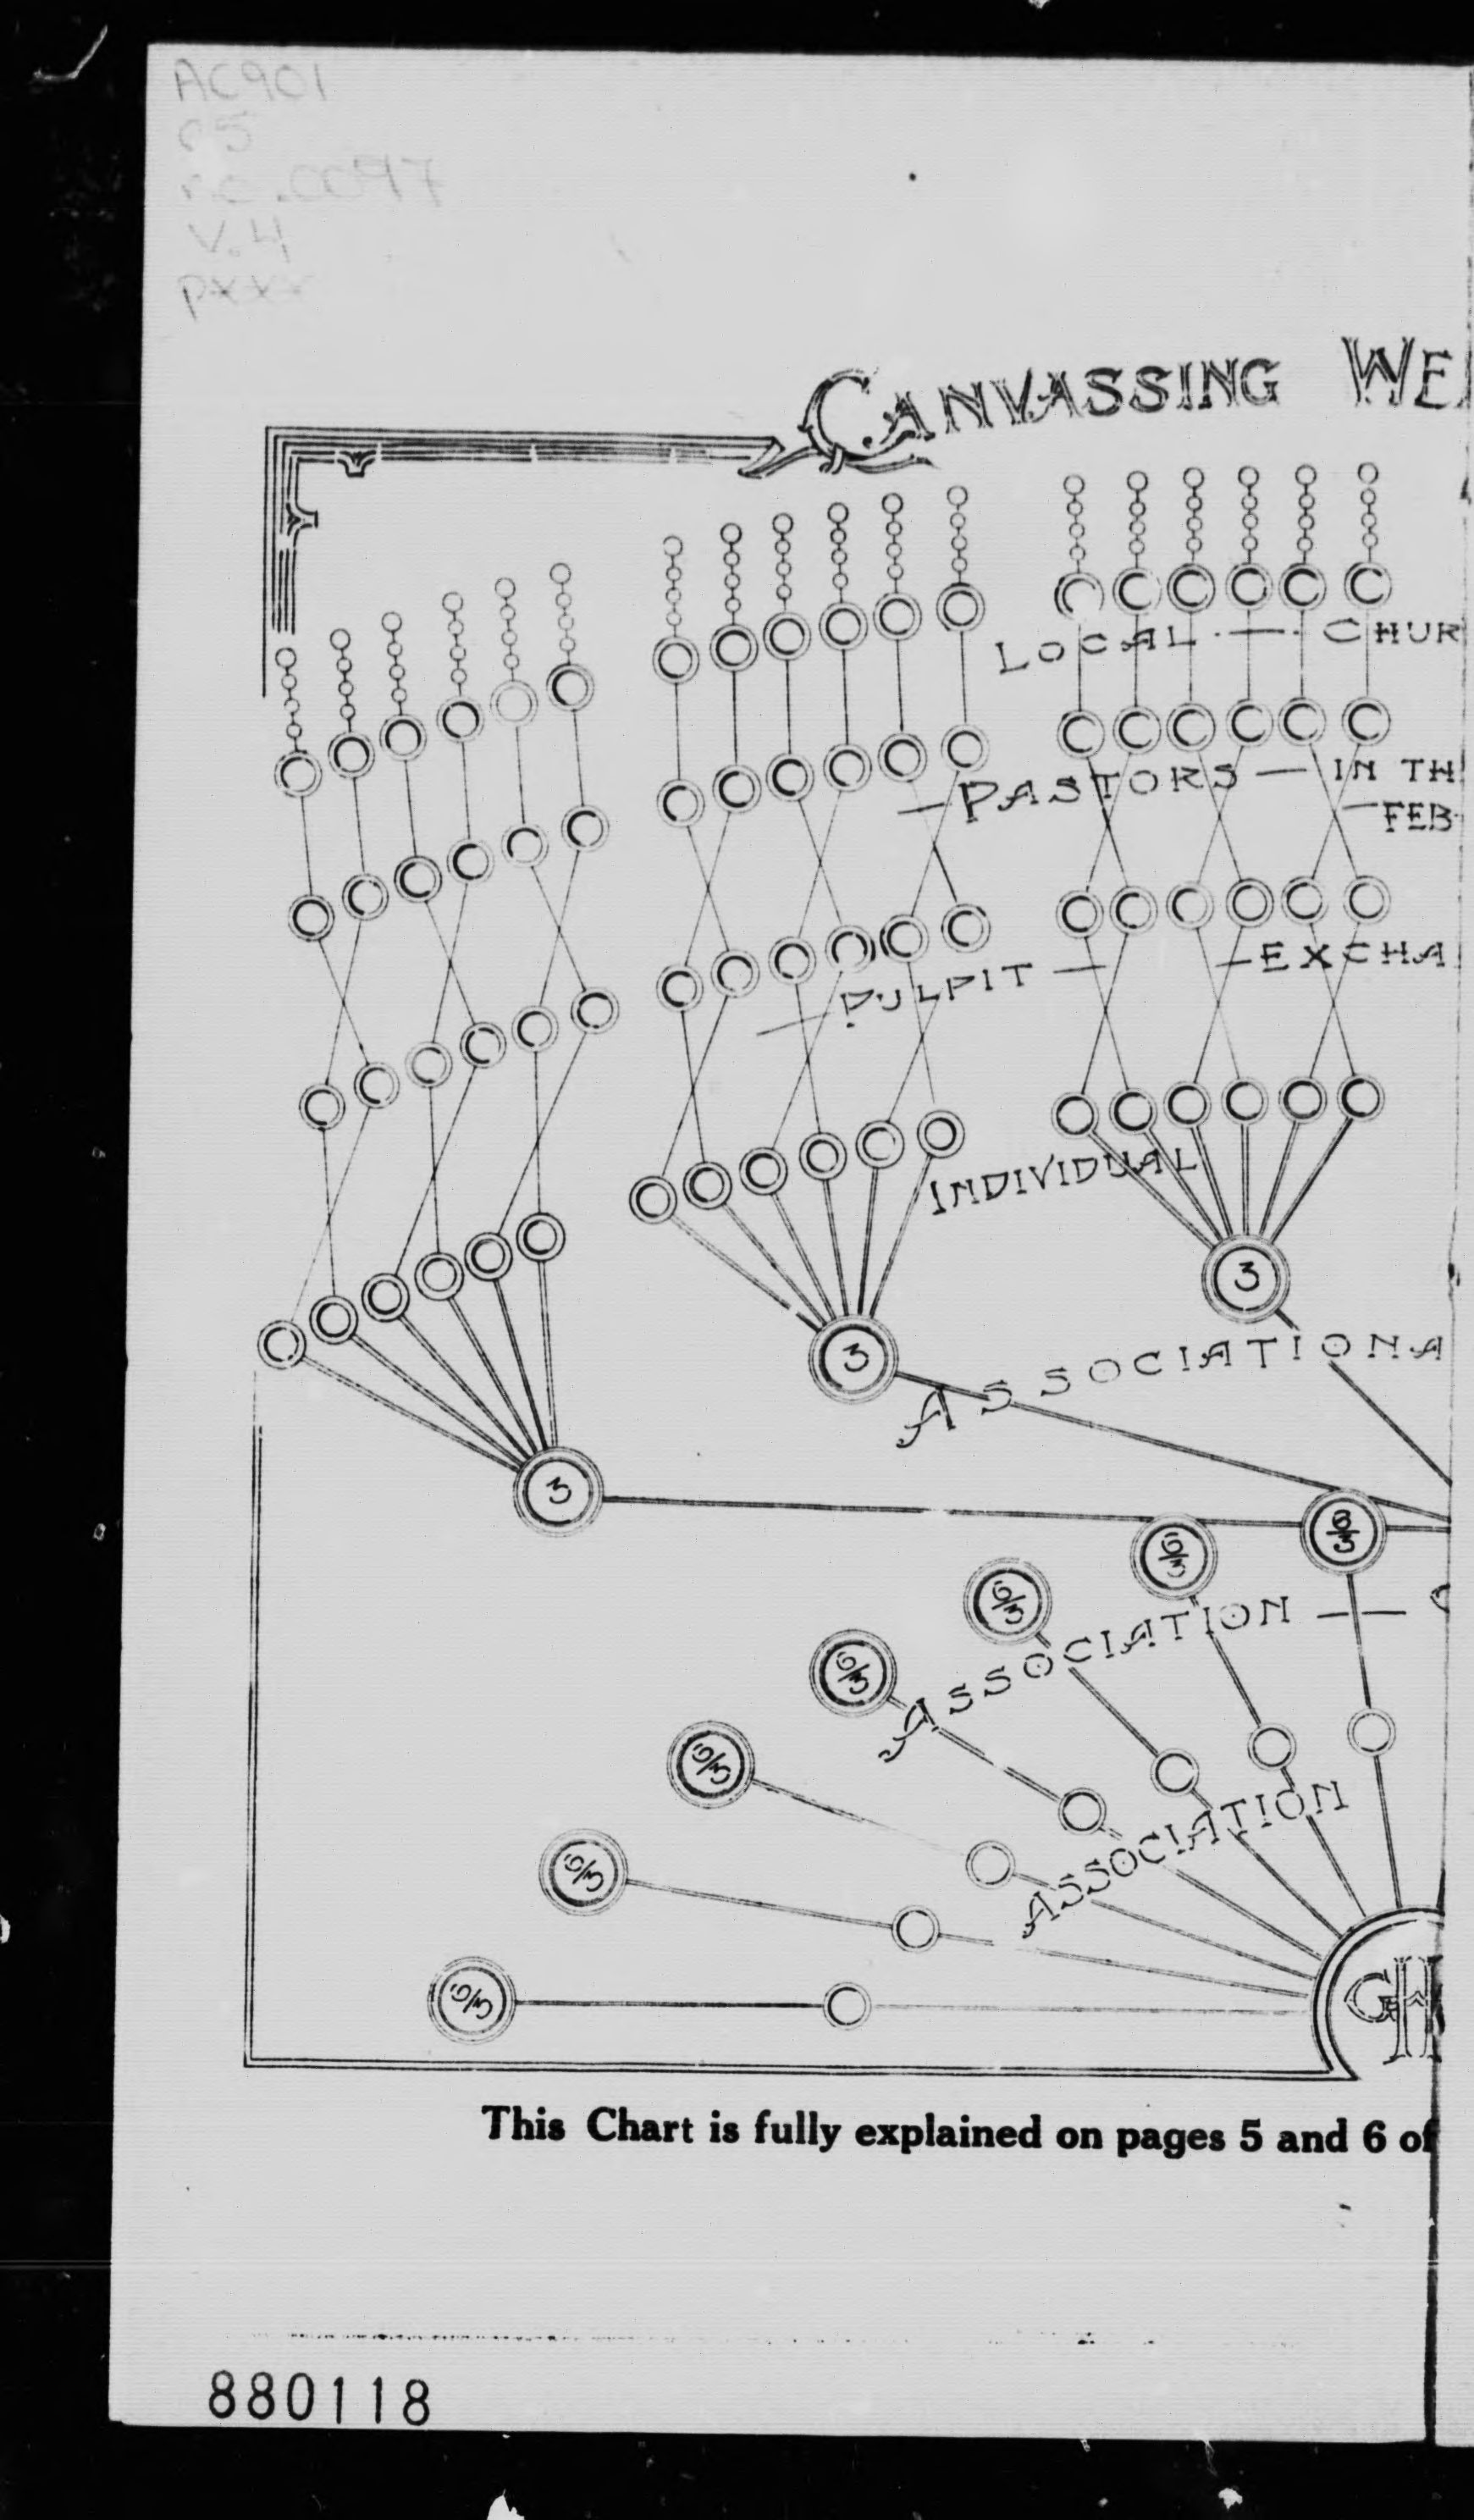 AC901
P5
no.0097
V.4
pxxx
CANVASSING WE
LOCAL — CHUR
— PASTORS — IN TH
— FEB
— PULPIT — — EXCHA
INDIVIDUAL
3
3
3
ASSOCIATIONA
6/3
6/3
6/3
6/3
6/3
6/3
6/3
ASSOCIATION —
ASSOCIATION
This Chart is fully explained on pages 5 and 6 of
880118